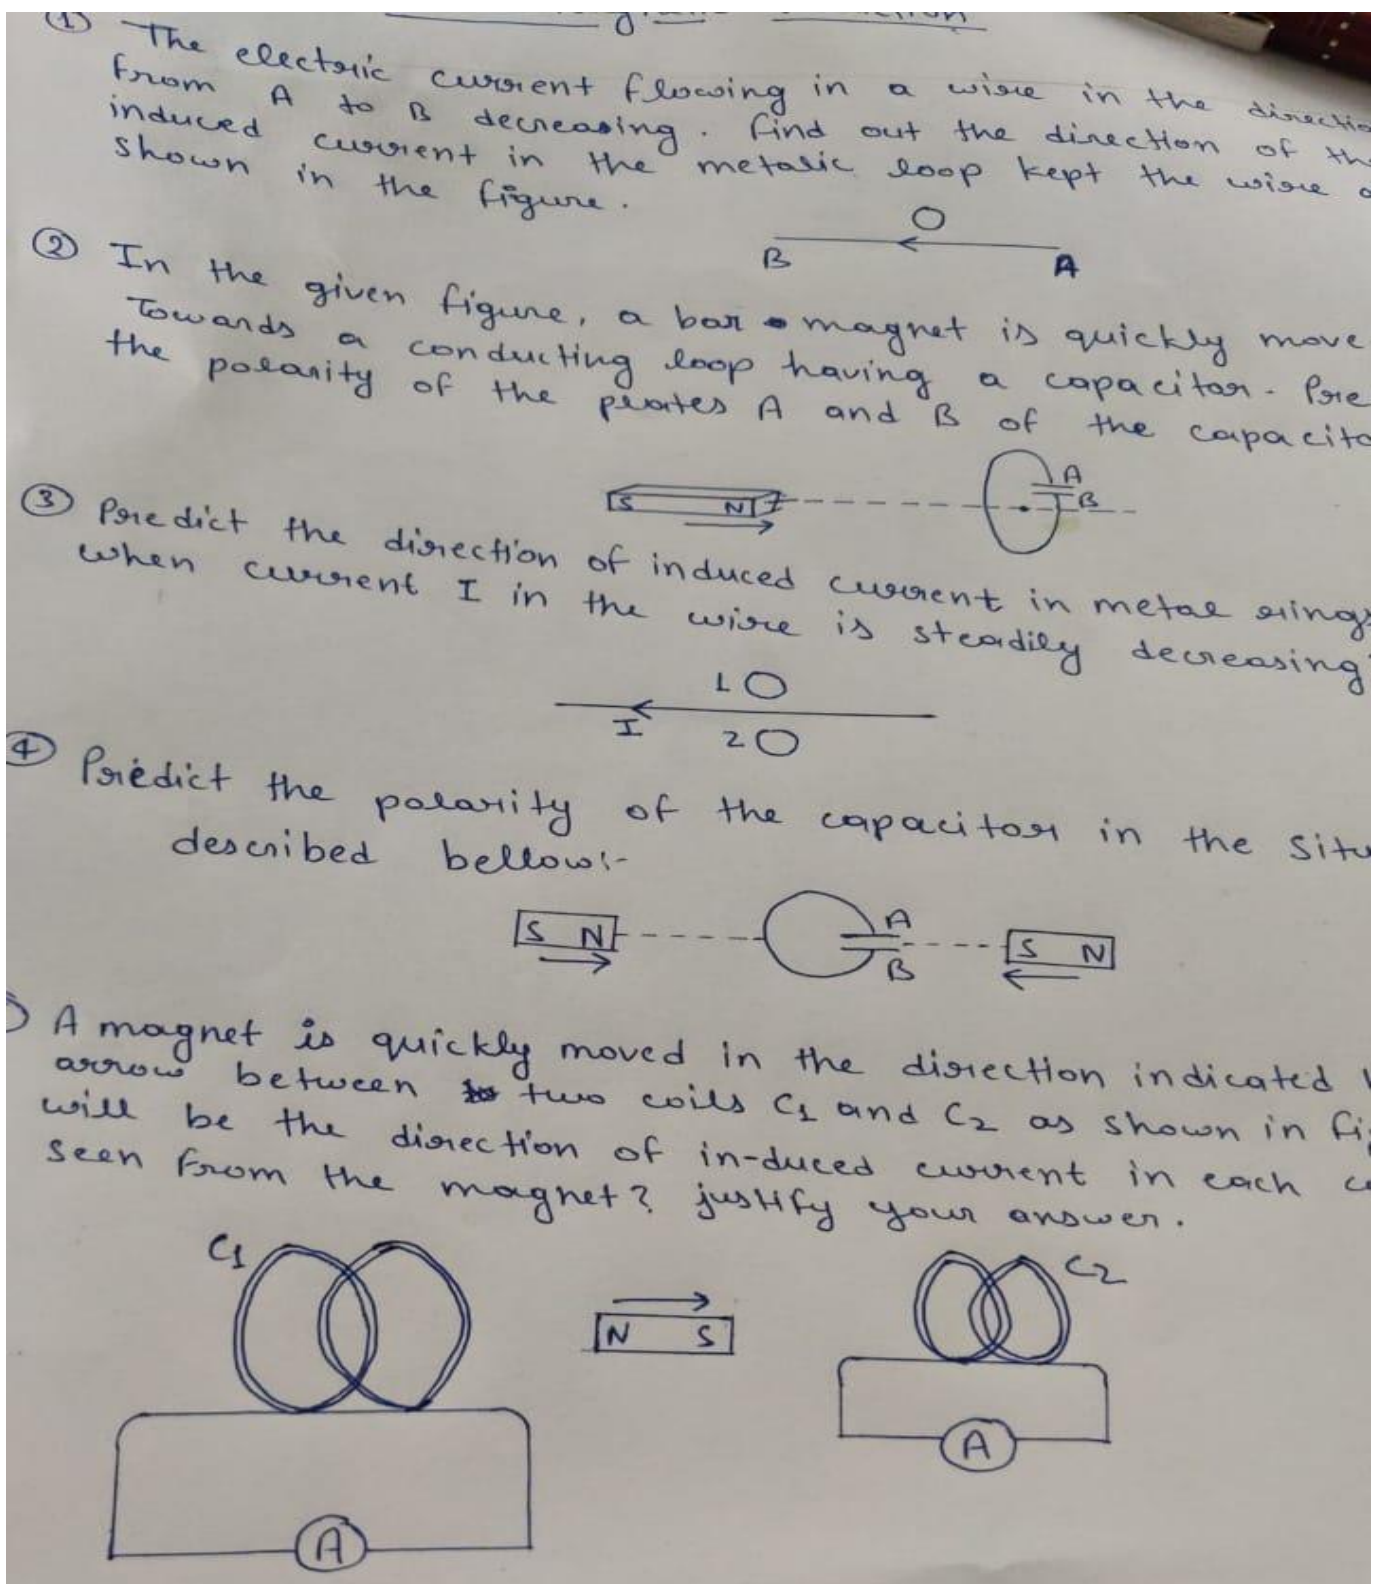 ① The electric current flowing in a wire in the
from A to B decreasing. find out the direction of
induced current in the metalic loop kept the wire
shown in the figure.
O
B A
② In the given figure, a bar magnet is quickly move
Towards a conducting loop having a capacitor.
the polarity of the plates A and B of the
S N A
B
③ Predict the direction of induced current in metal rings
when current I in the wire is steadily decreasing
1
I 2
④ Predict the polarity of the capacitor in the
described bellow:-
S N A S N
B
A magnet is quickly moved in the direction indicated
arrow between two coils C1 and C2 as shown in
will be the direction of in-duced current in each
seen from the magnet? justify your answer.
C1 C2
N S
A
A